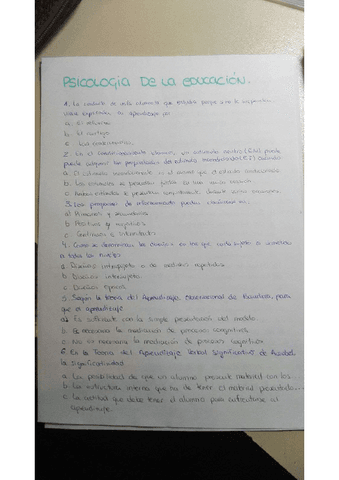 PSICOLOGIA DE LA EDUCACIÓN.
1. La conducta de un alumno que estudia porque
aprendizaje por
a. El refuerzo
b. El castigo
c. Las
2. En el condicionamiento clásico, un estímulo neutro (EN) puede
puede adquirir las propiedades del estímulo incondicionado (EI) cuando
a. El estímulo condicionado
b. Los estímulos se presentan
c. Ambos estímulos se presentan
3. Los programas de reforzamiento pueden clasificarse en:
a) Primarios y secundarios
b. Positivos y negativos
c. Continuos e intermitentes
4. Cómo se denominan los diseños en los que cada sujeto se
a todos los niveles
a. Diseños intrasujeto o de medidas repetidas.
b. Diseños intersujeto.
c. Diseños
5. Según la teoría del Aprendizaje Observacional de Bandura, para
que el aprendizaje
a) Es suficiente con la simple presentación del modelo.
b. Es necesaria la mediación de procesos cognitivos.
c. No es necesaria la mediación de procesos cognitivos
6. En la Teoría del Aprendizaje Verbal Significativo de Ausubel
la significatividad
a. La probabilidad de que un alumno presente material con los
b. La estructura interna que ha de tener el material presentado...
c. La actitud que debe tener el alumno para enfrentarse al
Aprendizaje.